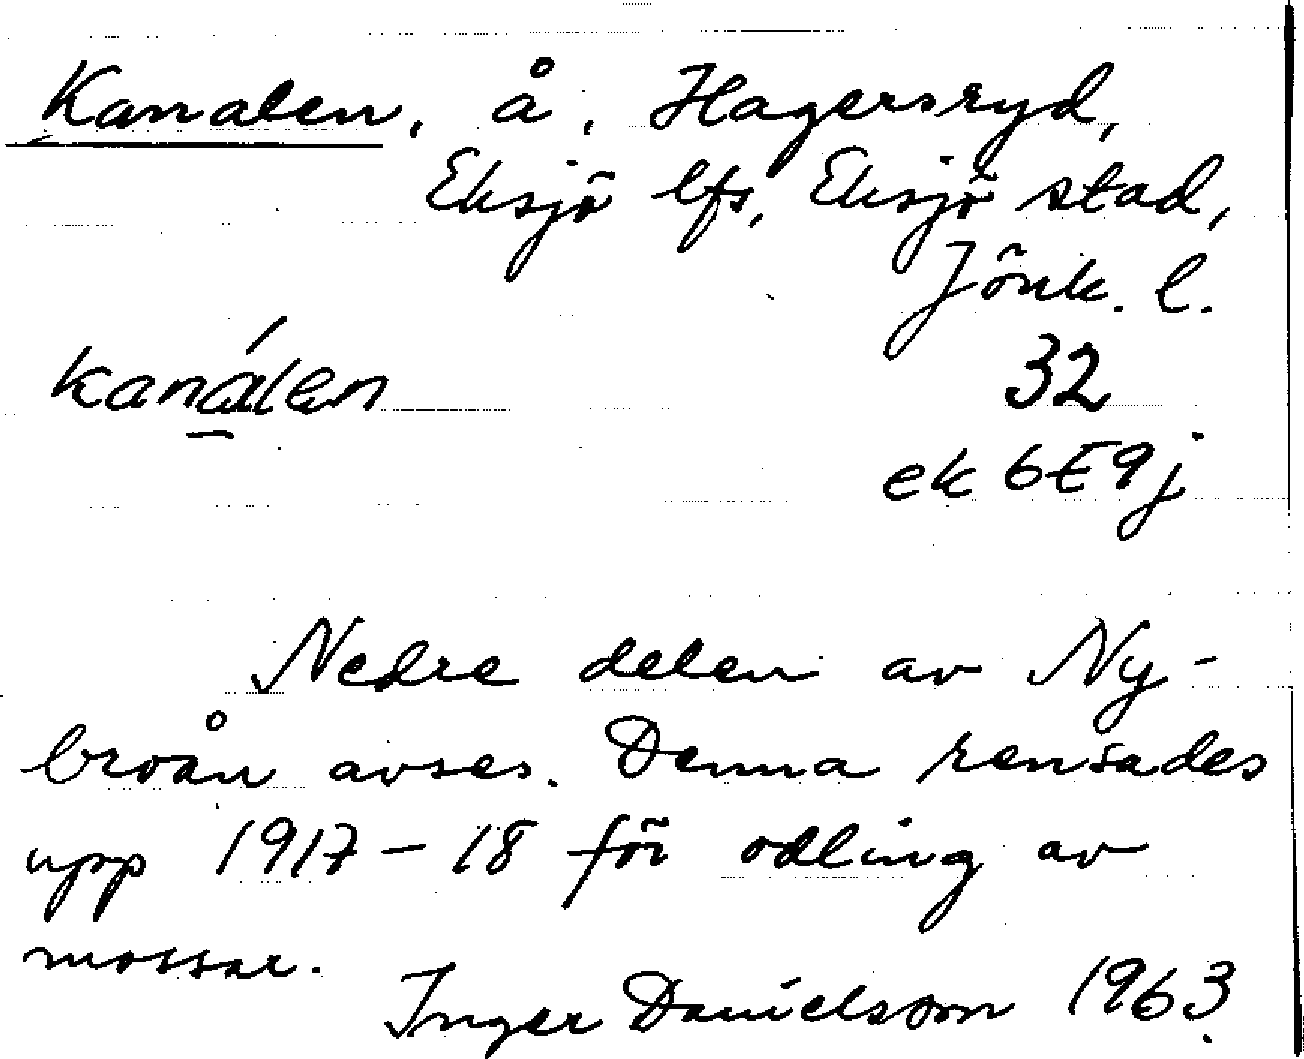 Kanalen, å, Hagersryd,
Eksjö lfs, Eksjö stad,
Jönk. l.
kanálen
32
ek 6E9j
Nedre delen av Ny-
broån avses. Denna rensades
upp 1917-18 för odling av
mossar.
Inger Danielsson 1963